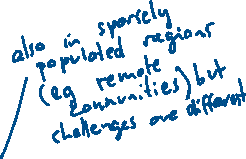 also in sparsely
populated regions
(eg remote
communities) but
challenges are different